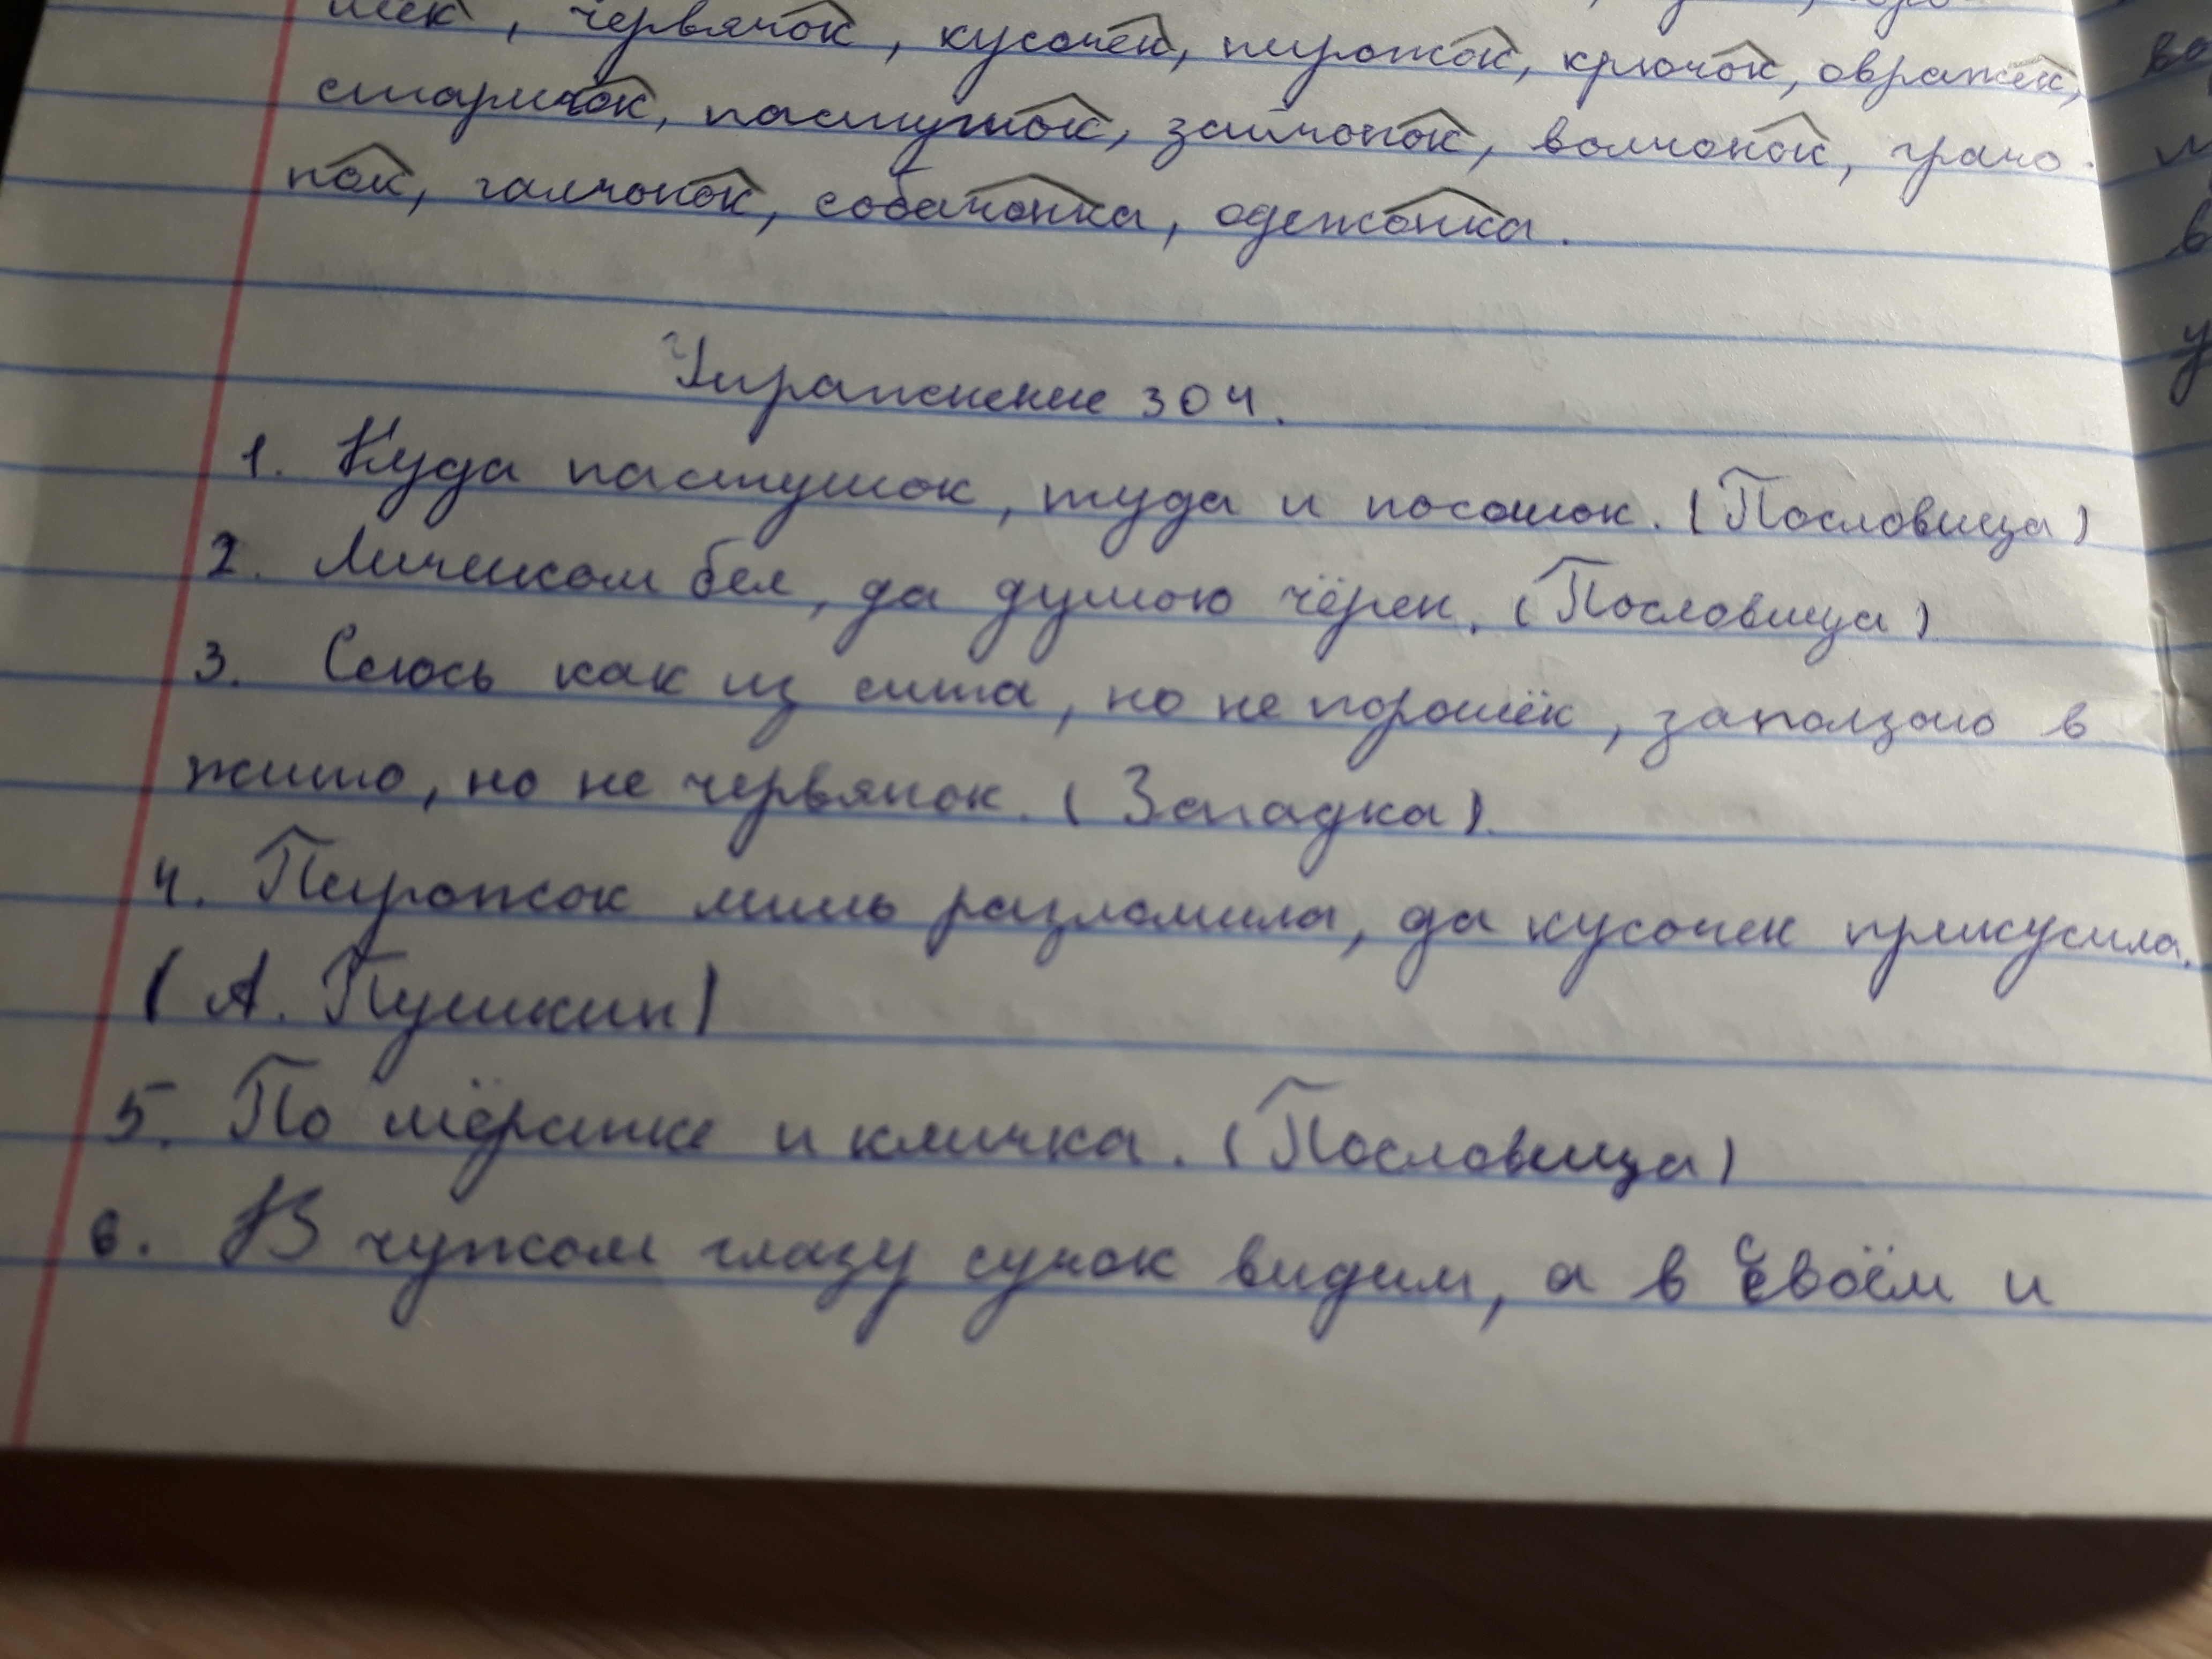 шек, червячок, кусочек, пирожок, крючок, овражек,
старичок, пастушок, зайчонок, волчонок, грачо-
нок, галчонок, собачонка, одежонка.
Упражнение 304.
1. Куда пастушок, туда и посошок. (Пословица)
2. Личиком бел, да душою чёрен. (Пословица)
3. Сеюсь как из сита, но не порошёк, заползаю в
жито, но не червячок. (Загадка).
4. Пирожок лишь разломила, да кусочек прикусила.
(А. Пушкин)
5. По мёрзтке и кличка. (Пословица)
6. В чужом глазу сучок видим, а в своём и